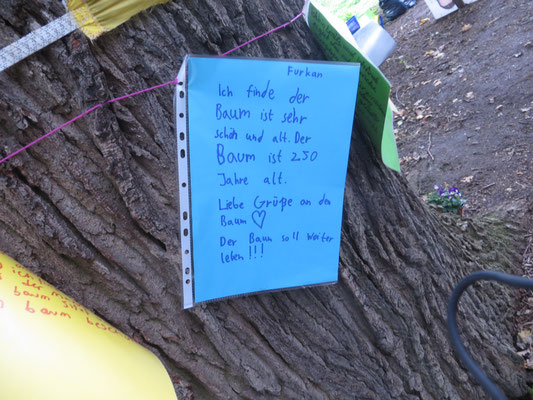 Furkan
Ich finde der
Baum ist sehr
schön und alt. Der
Baum ist 250
Jahre alt.
Liebe Grüße an den
Baum ♡
Der Baum soll weiter
leben!!!
der
baum
baum